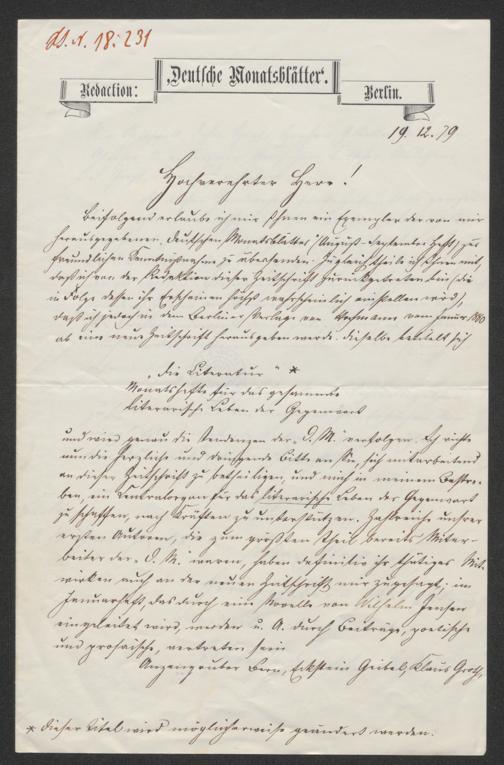 18:231
„Deutsche Monatsblätter“.
Redaction:
Berlin.
19.12.79
Hochverehrter Herr!
Beifolgend erlaube ich mir Ihnen ein Exemplar der von mir
herausgegebenen „Deutschen Monatsblätter“ (August-Septemberheft) zur
freundlichen Kenntnißnahme zu übersenden. Zugleich theile ich Ihnen mit,
daß ich von der Redaktion dieser Zeitschrift zurückgetreten bin (die
in Folge dessen ihr Erscheinen höchst wahrscheinlich einstellen wird),
daß ich jedoch in dem Berliner Verlage von Hofmann vom Januar 1880
ab eine neue Zeitschrift herausgeben werde. Dieselbe betitelt sich
„Die Literatur“ *
Monatshefte für das gesammte
literarische Leben der Gegenwart
und wird genau die Tendenzen der „D. M.“ verfolgen. Ich richte
nun die herzliche und dringende Bitte an Sie, sich mitarbeitend
an dieser Zeitschrift zu betheiligen, und mich in meinem Bestre-
ben, ein Centralorgan für das literarische Leben der Gegenwart
zu schaffen, nach Kräften zu unterstützen. Zahlreiche unsrer
ersten Autoren, die zum größten Theil bereits Mitar-
beiter der „D. M.“ waren, haben definitiv ihr thätiges Mit-
wirken auch an der neuen Zeitschrift mir zugesagt; im
Januarheft, das durch eine Novelle von Wilhelm Jensen
eingeleitet wird, werden u. A. durch Beiträge, poetische
und prosaische, vertreten sein
Anzengruber Eckstein Geibel, Klaus Groth,
* Dieser Titel wird möglicherweise geändert werden.